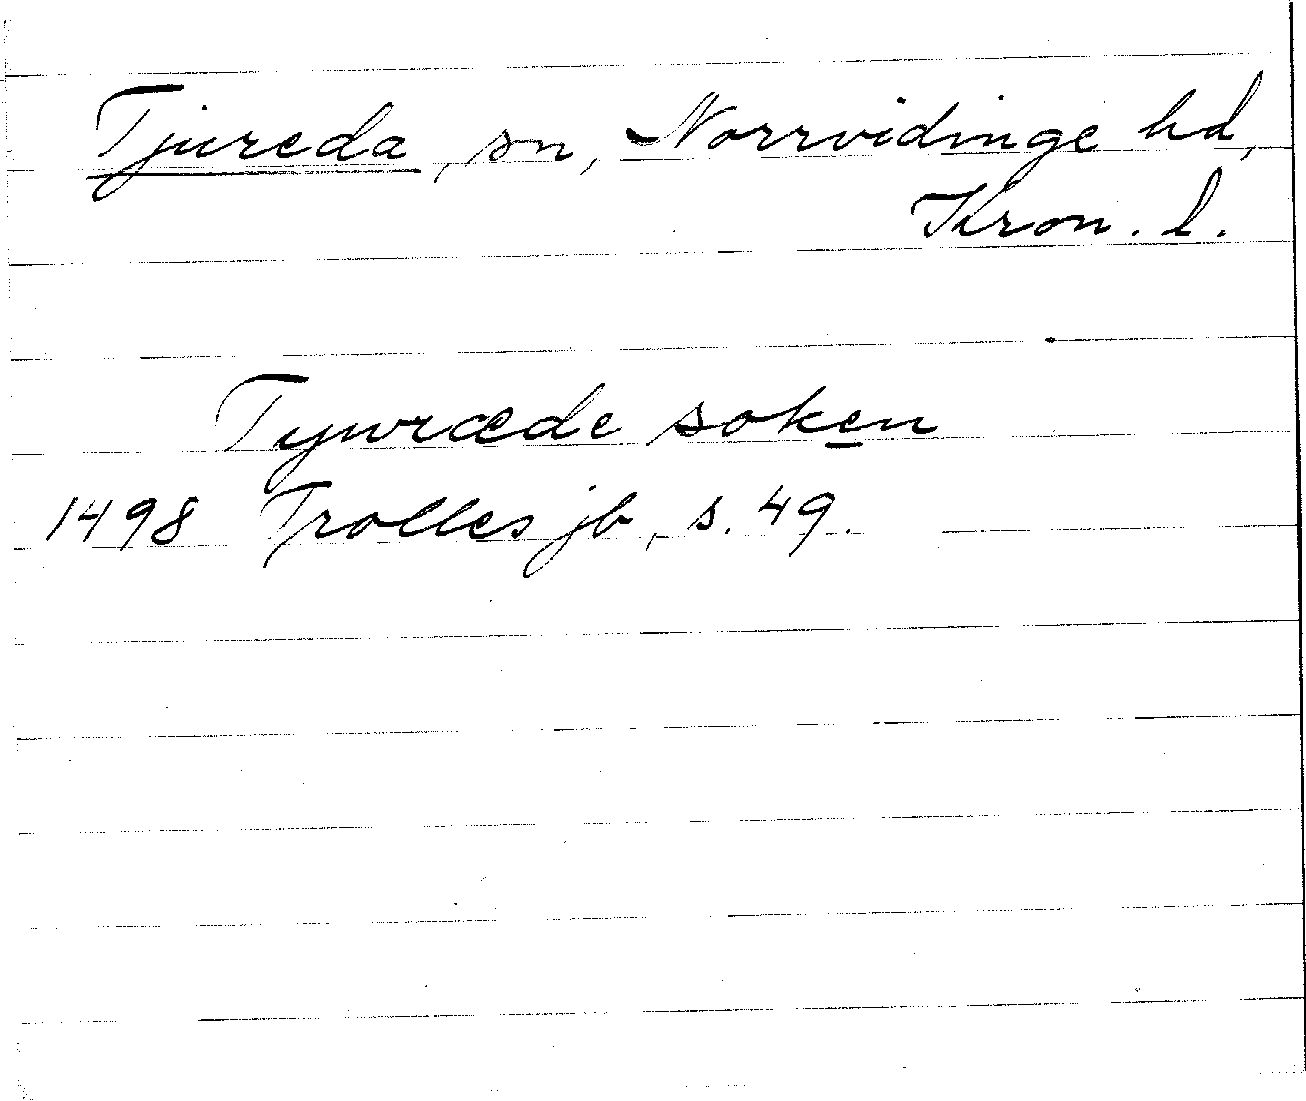 Tjureda, sn, Norrvidinge hd,
Kron. l.
Tywræde soken
1498 Trolles jb, s. 49.